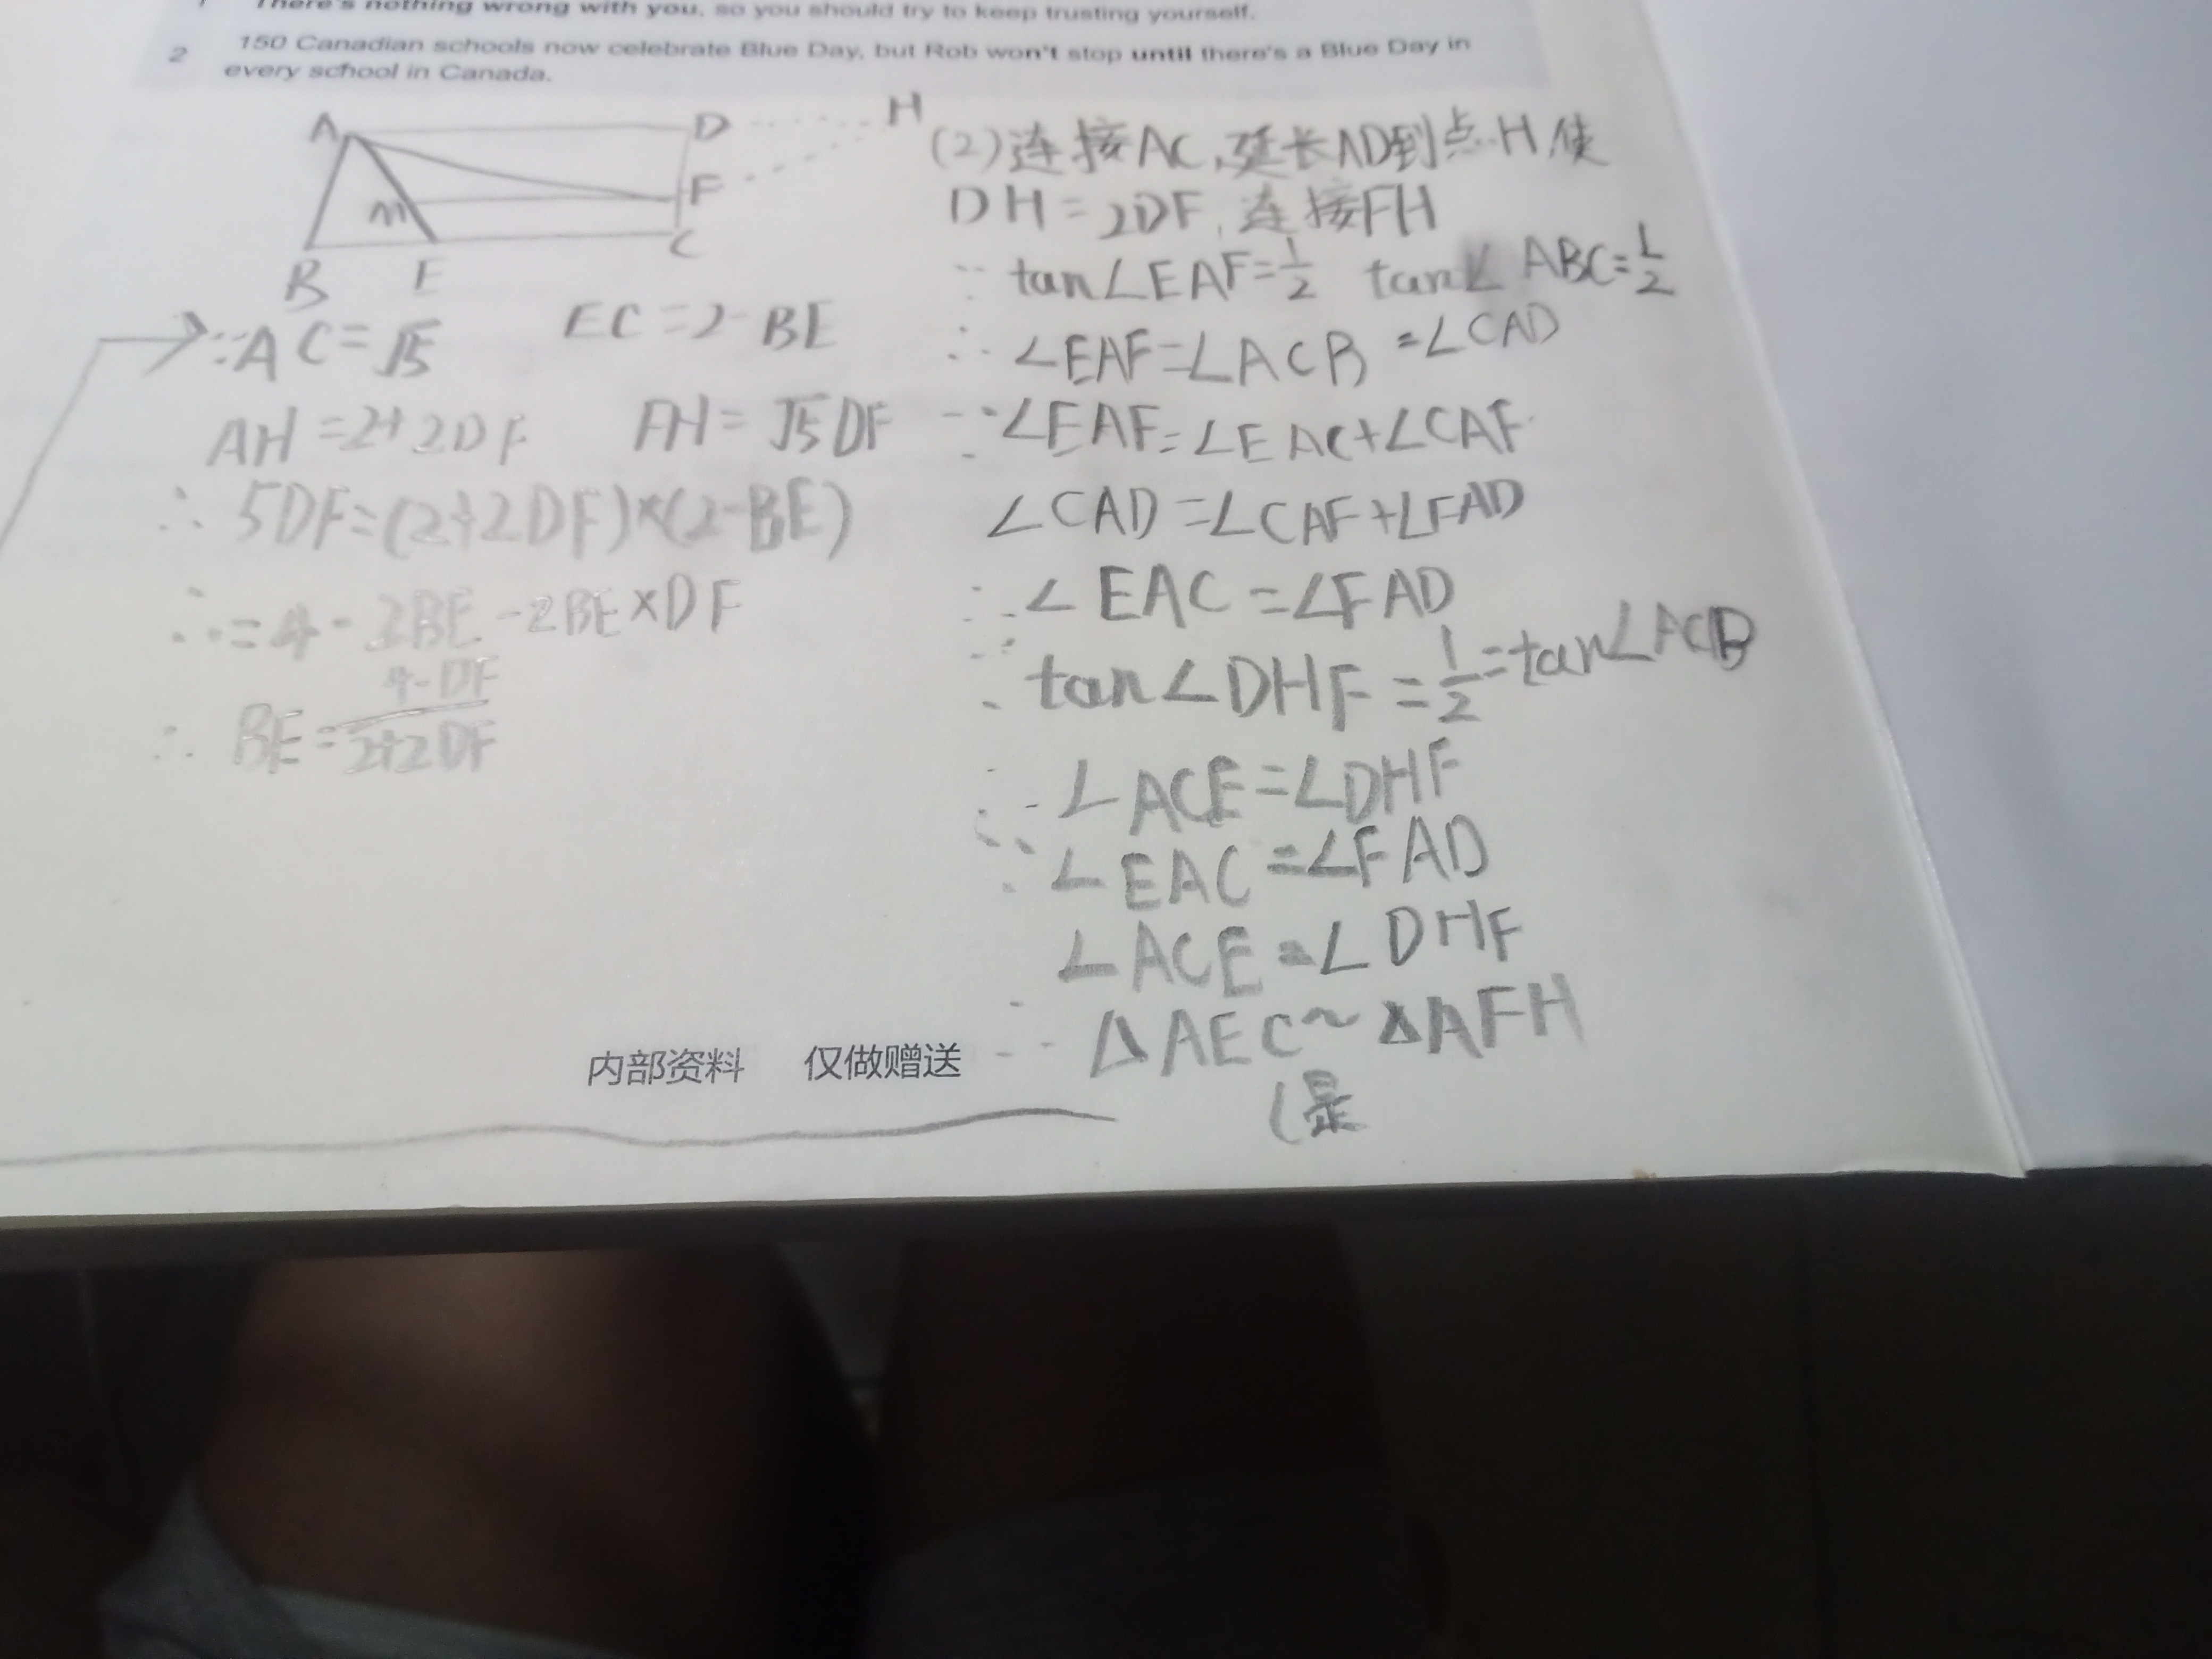 There's nothing wrong with you, so you should try to keep trusting yourself.
2 150 Canadian schools now celebrate Blue Day, but Rob won't stop until there's a Blue Day in
every school in Canada.
A D H
M F
B E C
(2)连接AC,延长AD到点H,使
DH=2DF,连接FH
∵ tan∠EAF=1/2 tan∠ABC=1/2
∴ ∠EAF=∠ACB=∠CAD
∵ ∠EAF=∠EAC+∠CAF
∠CAD=∠CAF+∠FAD
∴ ∠EAC=∠FAD
∵ tan∠DHF=1/2=tan∠ACB
∴ ∠ACE=∠DHF
∵ ∠EAC=∠FAD
∠ACE=∠DHF
∴ △AEC~△AFH
(是
∵AC=√5 EC=2-BE
AH=2+2DF FH=√5DF
∴ 5DF=(2+2DF)×(2-BE)
∴ =4-2BE-2BE×DF
∴ BE=4-DF/2+2DF
内部资料 仅做赠送